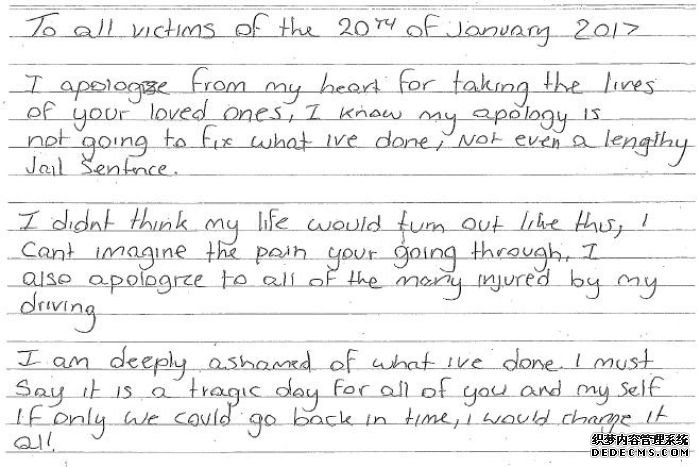 To all victims of the 20th of January 2017
I apologize from my heart for taking the lives
of your loved ones, I know my apology is
not going to fix what ive done, Not even a lengthy
Jail Sentnce.
I didnt think my life would turn out like this, I
Cant imagine the pain your going through. I
also apologize to all of the many injured by my
driving
I am deeply ashamed of what ive done. I must
Say it is a tragic day for all of you and my self
If only we could go back in time, i would change it
all.
织梦内容管理系统
DEDECMS.COM